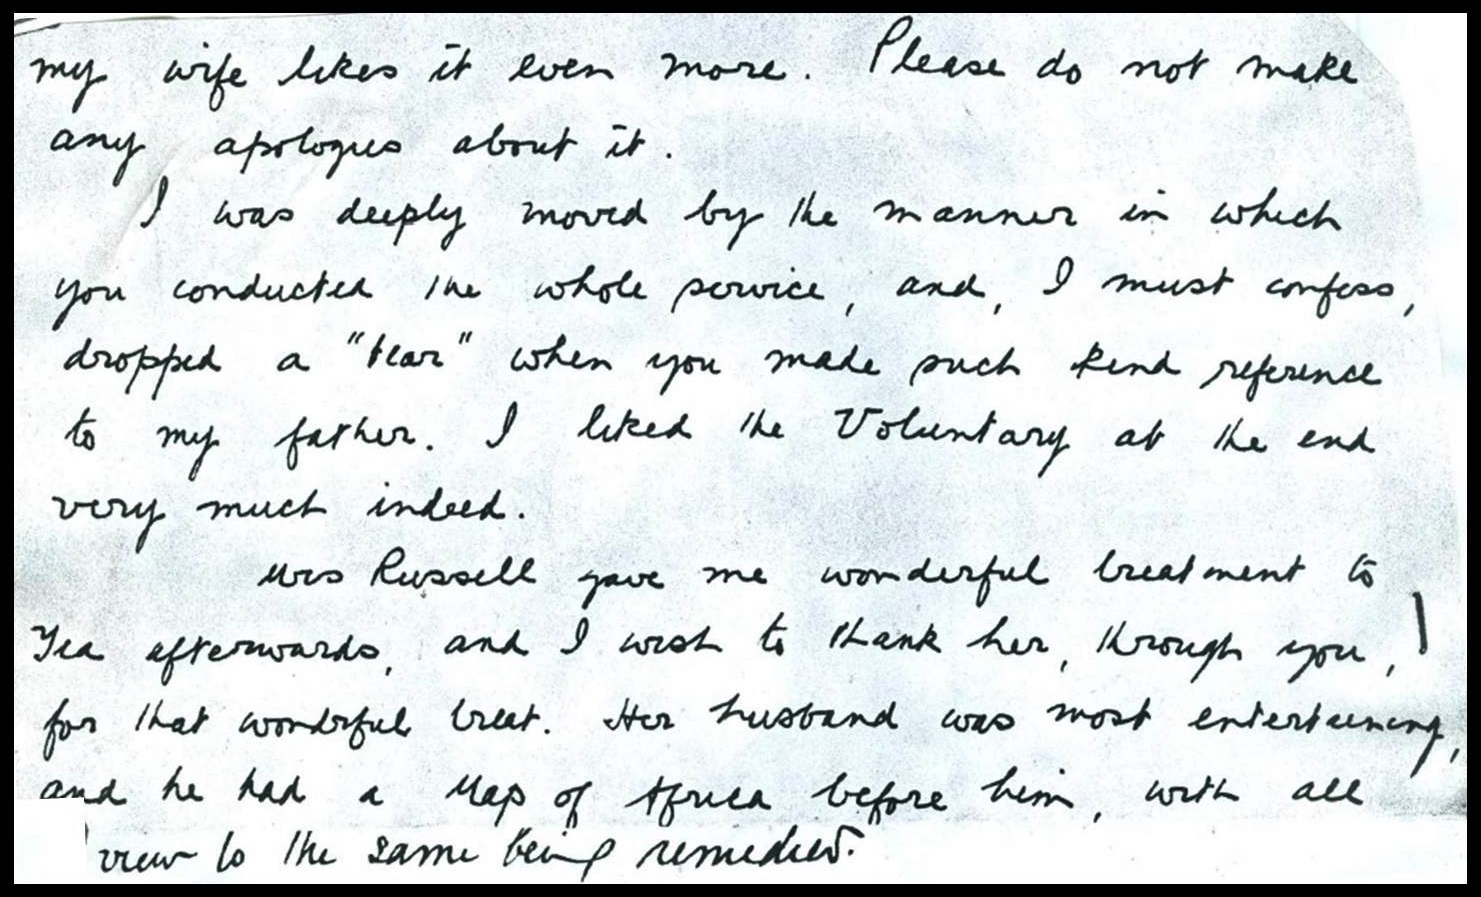 my wife likes it even more. Please do not make
any apologies about it.
I was deeply moved by the manner in which
you conducted the whole service, and, I must confess,
dropped a "tear" when you made such kind reference
to my father. I liked the Voluntary at the end
very much indeed.
Mrs Russell gave me wonderful treatment to
Tea afterwards, and I wish to thank her, through you,
for that wonderful treat. Her husband was most entertaining,
and he had a Map of Africa before him, with all
view to the same being remedied.